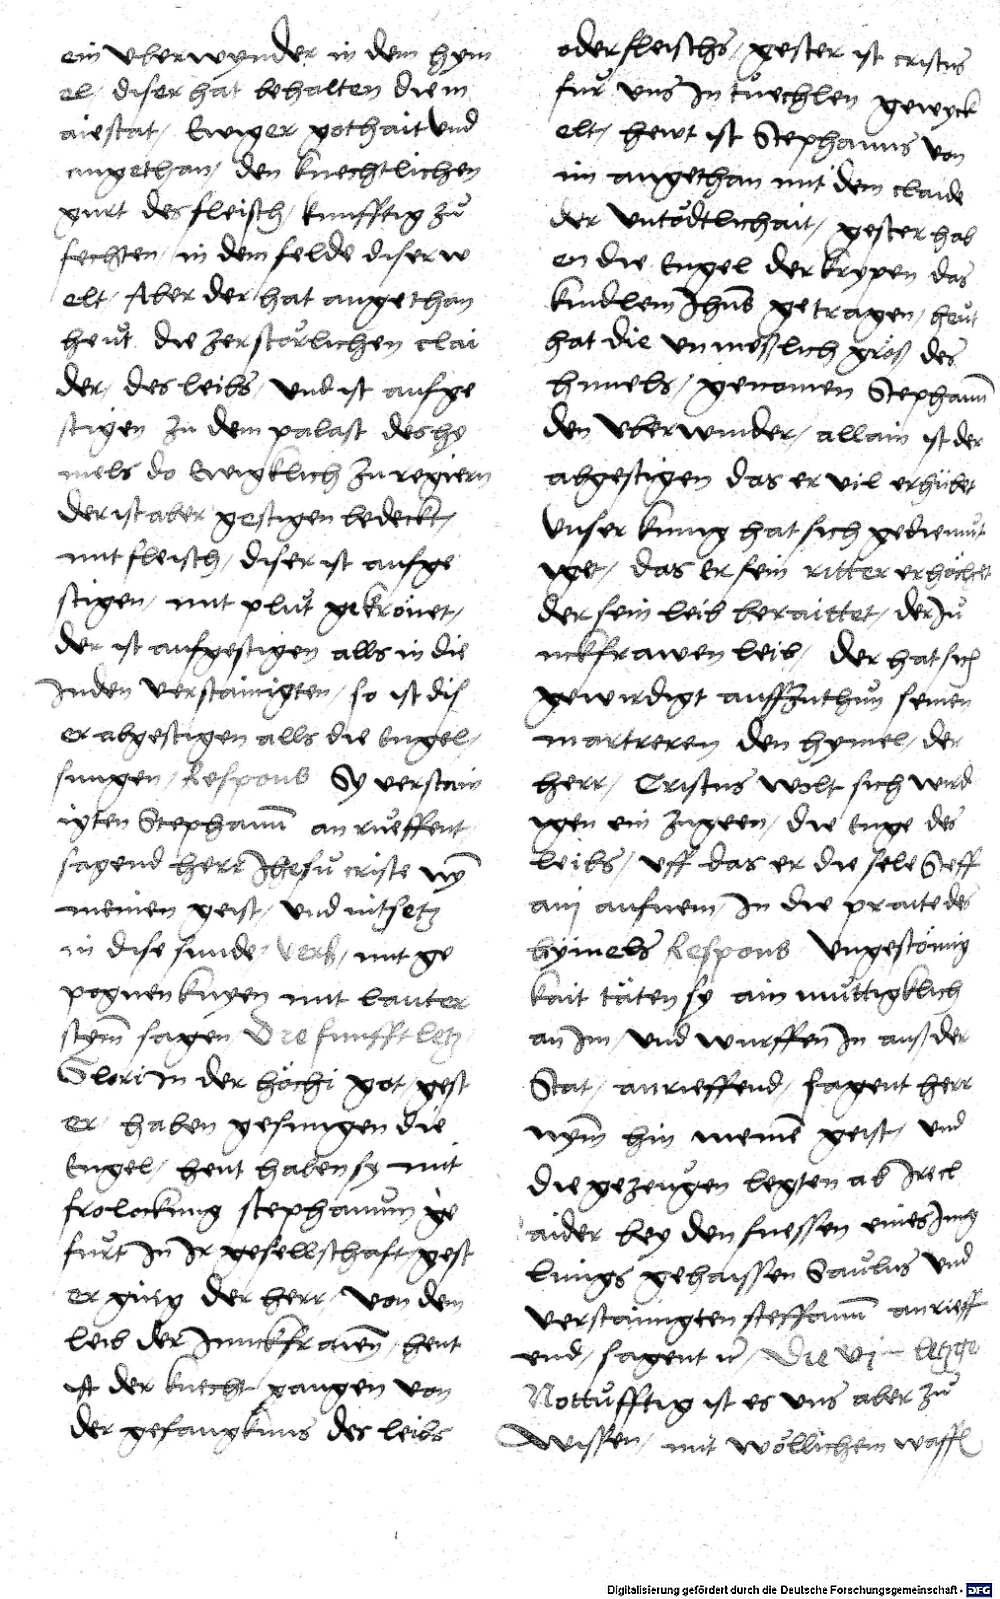 ein vberwynder in dem hym
el / diser hat behalten die m
aiestat / Ewiger gothait vnd
angethan / den knechtlichen
gurt des fleisch / kunfftig zů
fechten / in dem felde diser w
elt / Aber der hat angethan
heut die zerstörlichen clai
der / des leibs / vnd ist aufge
stigen zu dem palast des he
mels do Ewigklich zu regiern
der ist aber gestigen bedeckt /
mit fleisch / diser ist aufge
stigen / mit plůt gekrönet /
der ist aufgestigen alls in die
Juden verstainigten / so ist dis
er abgestigen alls die engel /
sungen / Respons Sy verstain
igten Stephanū an rueffent
sagend herr Jhesu criste nȳ
meinen geist / vnd nit setz
in dise sunde / vers / mit ge
pognen knyen mit lauter
stym̄ sagen Die funfft letz
Glori in der höchi got / gest
er / haben gesungen die
Engel / heut haben sy mit
frolockung stephanum ge
fürt in Ir gesellschaft / gest
er gieng der herr / von dem
leib der Junckfrawen / heut
ist der knecht / gangen von
der gefangknus des leibs
oder fleischs / gester ist cristus
für vns in tüechlen gewyck
elt / hewt ist Stephanus von
im angethan mit dem claide
der vntödtlichait / gester hab
en die Engel der krypen das
kindlein Jhūs getragen / heut
hat die vnmeßlich gröss des
himels / genomen Stephanū
den vberwinder / allain ist der
abgestigen das er vil erhübet
vnser kunig hat sich gediemüt
iget / das Er sein ritter erhöchet
der sein leib beraittet / der Ju
nckfrawen leib / der hat sich
gewirdigt auffzuthun seinen
martreren den hymel / der
herr / Cristus wolt sich wird
igen ein zugeen / die enge des
leibs / vff das er die sele Steff
ani aufnem / in die praite des
hymels Respons Vngestömig
kait täten sy ain müttigklich
an im / vnd wurffen in auß der
Stat / anrieffend / sagent herr
nym̄ hin meinē geist / vnd
die gezeugen legten ab Ire cl
aider bey den fuessen eines Jung
lings gehaissen Saulus vnd
verstainigten steffanū anrieff
end / sagent Die vj letzge
Nottufftig ist es vns aber zů
wissen / mit wöllichem waffē